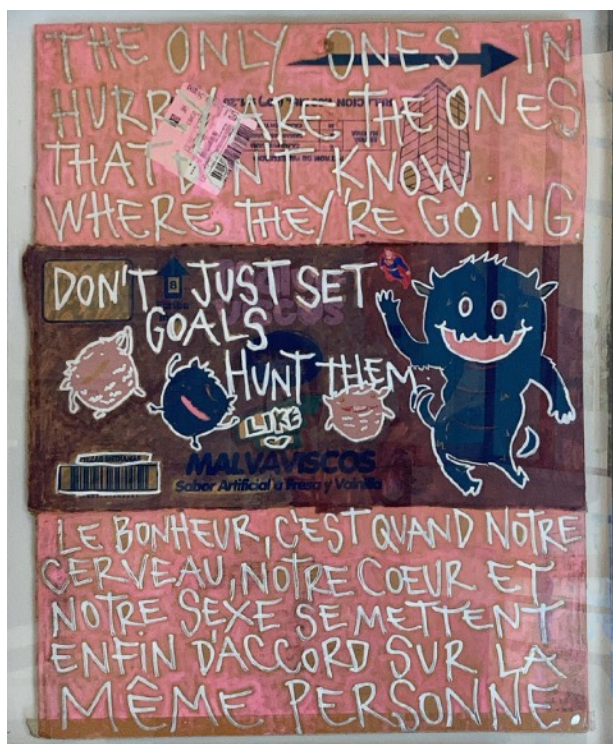 THE ONLY ONES IN
HURRY ARE THE ONES
THAT DON'T KNOW
WHERE THEY'RE GOING.
DON'T JUST SET
GOALS
HUNT THEM
LIKE
PIEZAS MEDIANAS
MALVAVISCOS
Sabor Artificial a Fresa y Vainilla
LE BONHEUR, C'EST QUAND NOTRE
CERVEAU, NOTRE COEUR ET
NOTRE SEXE SE METTENT
ENFIN D'ACCORD SUR LA
MÊME PERSONNE.